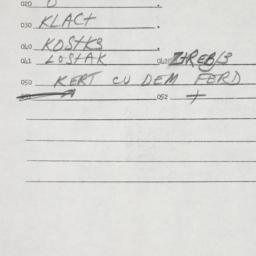 020 U .
030 KLACT .
040 KOSTKS .
041 LOSTAK 042 ZTREB/3
050 KERT CU DEM FERD
052 +